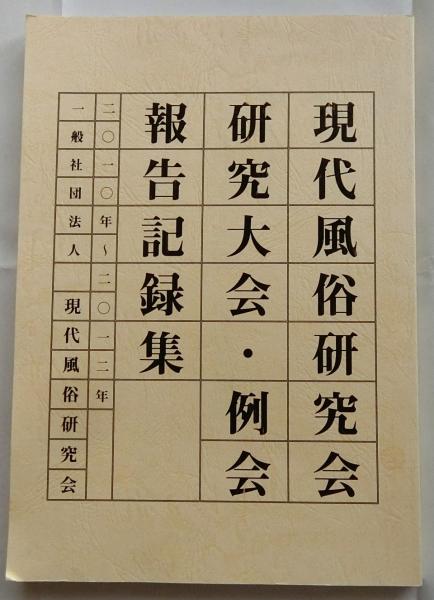 現代風俗研究会
研究大会・例会
報告記録集
二〇一〇年～二〇一二年
一般社団法人 現代風俗研究会